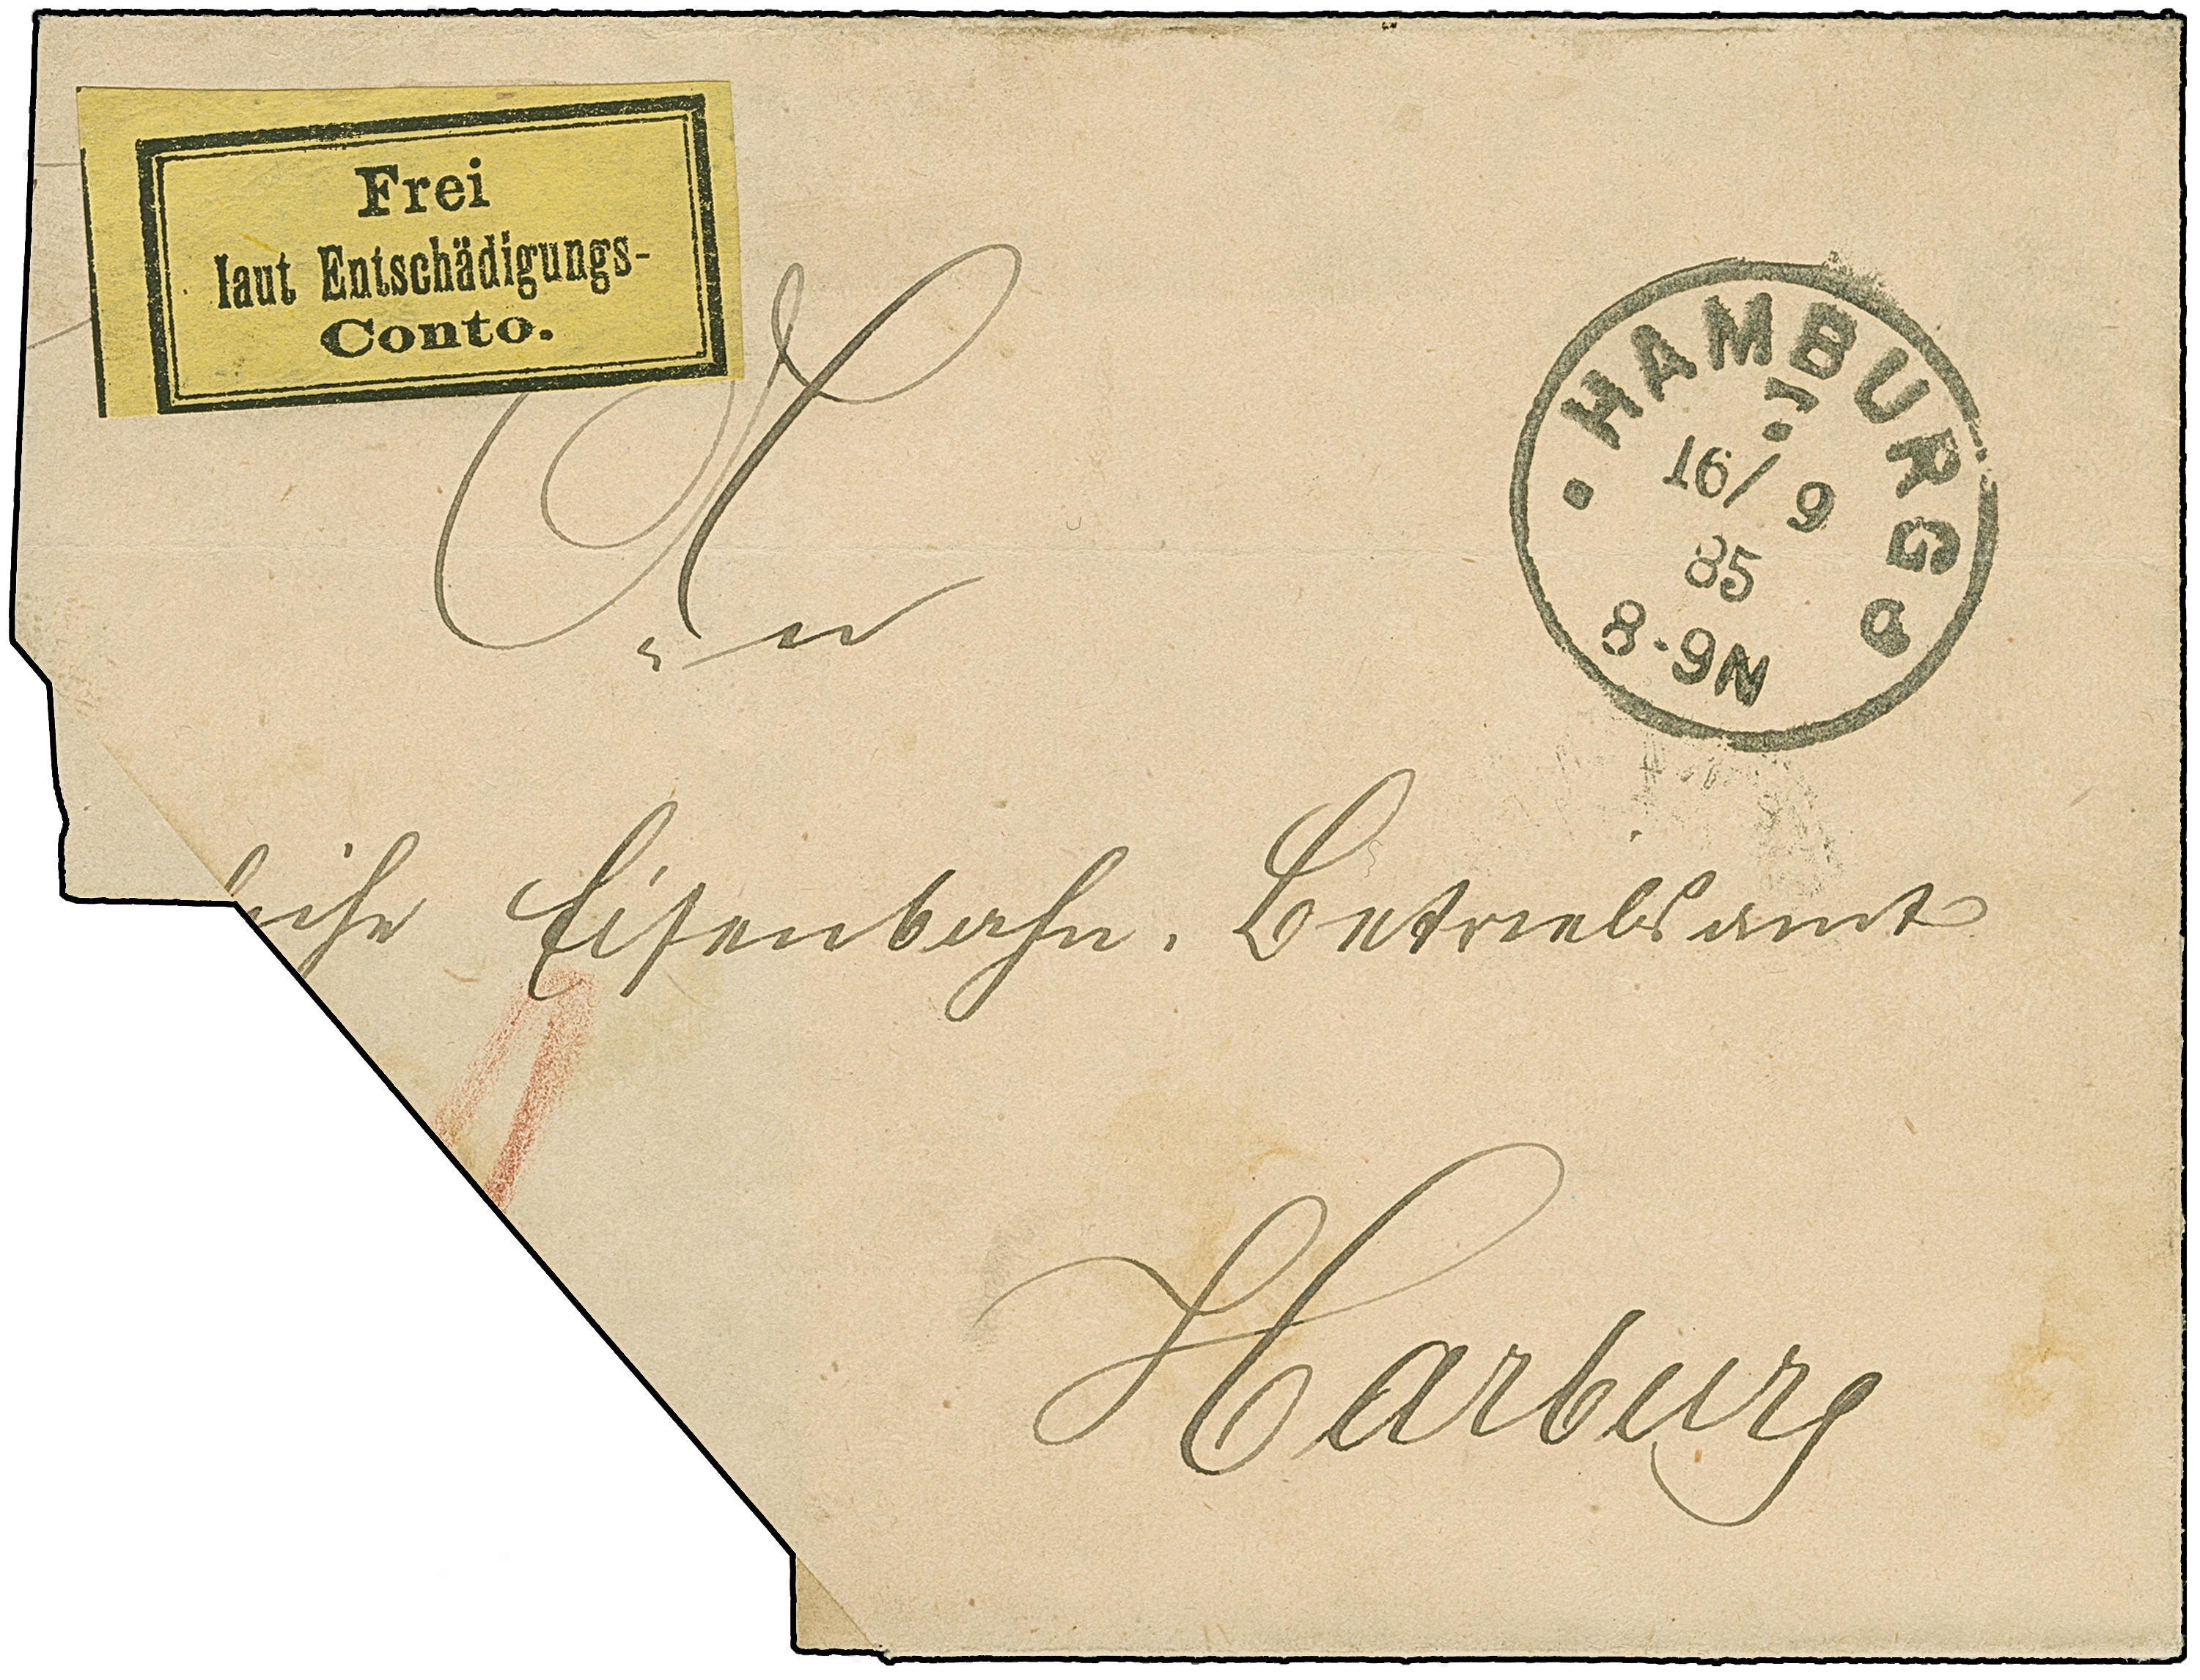 Frei
laut Entschädigungs-
Conto.
HAMBURG
1.
16/9
85
8-9N
An
liche Eisenbahn. Betriebsamt
Harburg